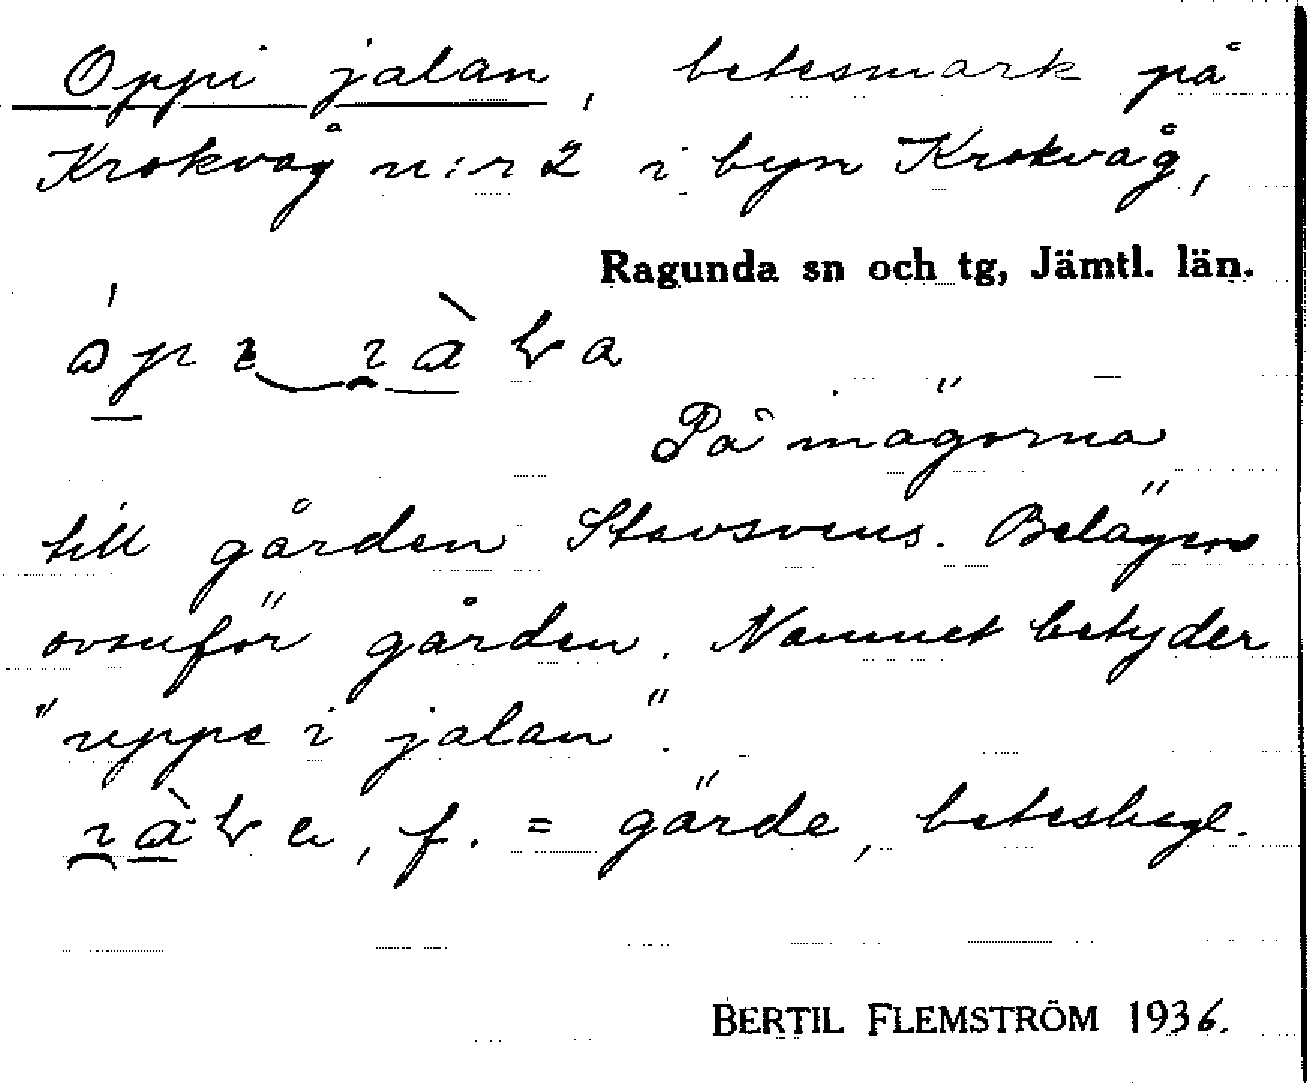 Oppi jalan, betesmark på
Krokvåg n:r 2 i byn Krokvåg,
Ragunda sn och tg, Jämtl. län.
På inägorna
till gården Stavsvens. Belägen
ovanför gården. Namnet betyder
"uppe i jalan".
f. = gärde, beteshage.
BERTIL FLEMSTRÖM 1936.